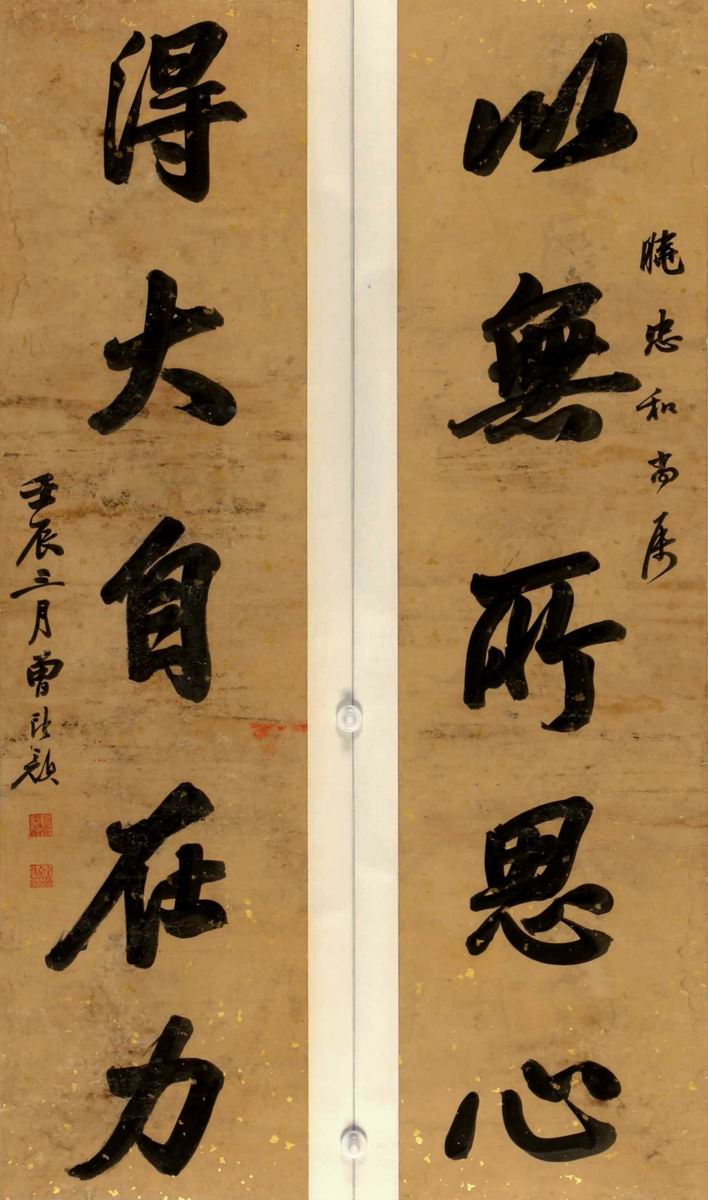 以無所思心
晻忠和尚属
得大自在力
壬辰三月曾熙題